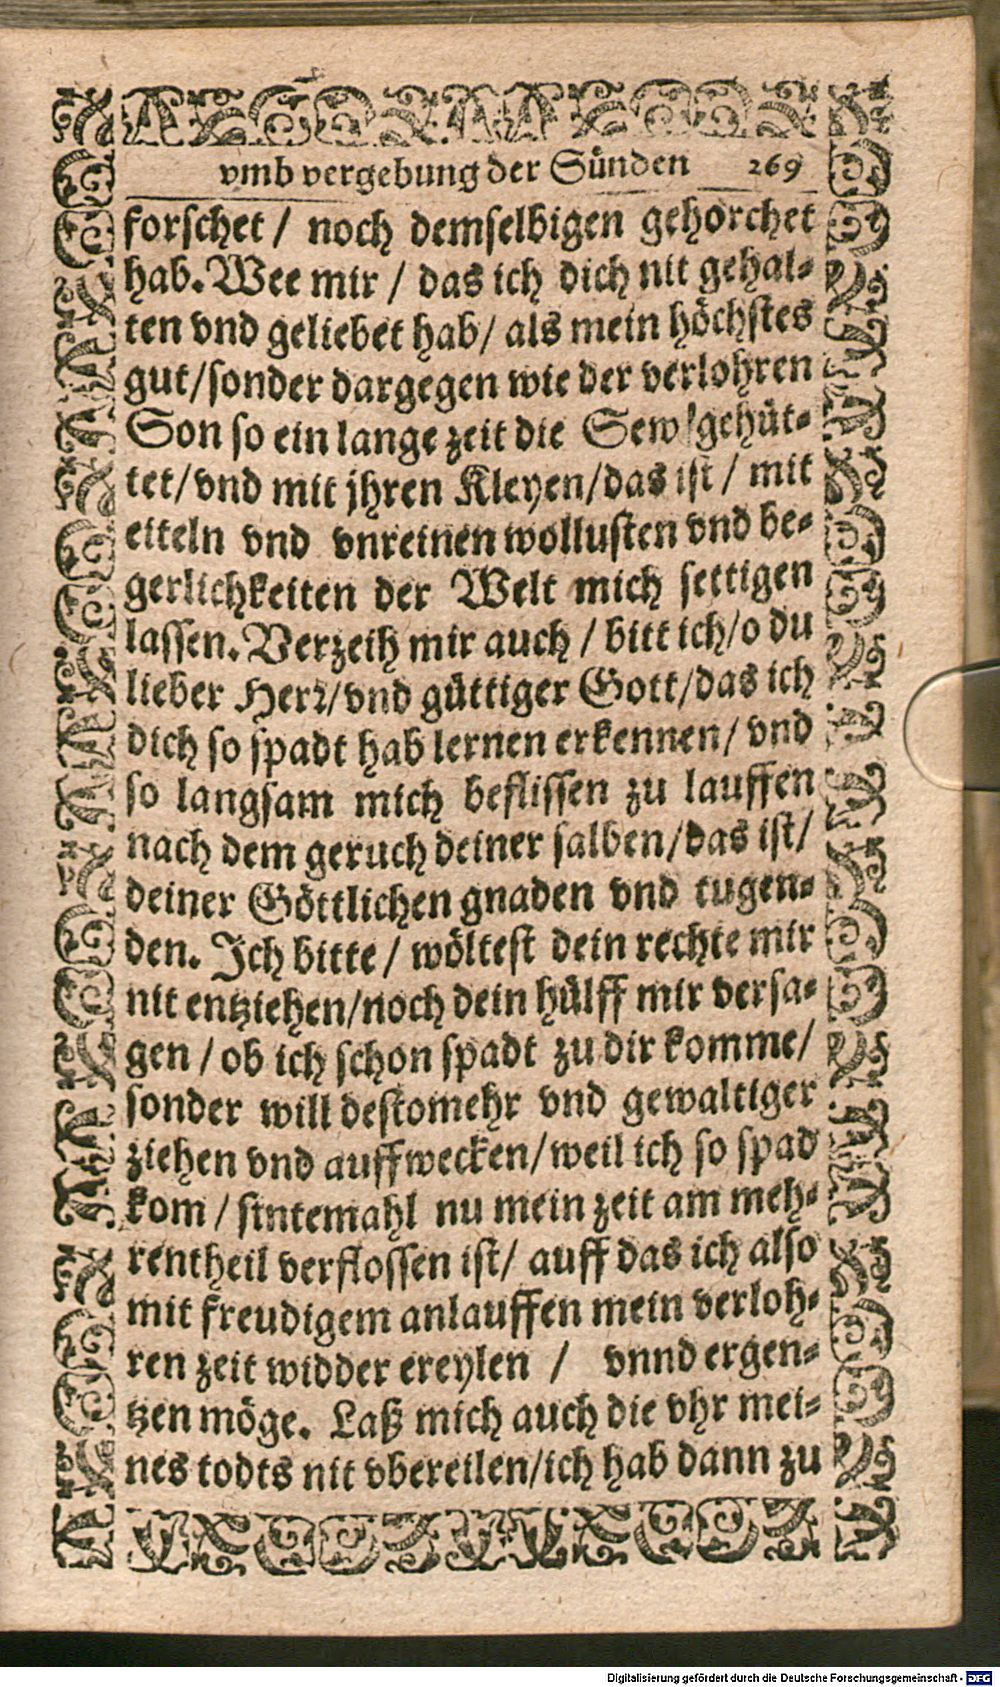 vmb vergebung der Sünden 269
forschet / noch demselbigen gehorchet
hab. Wee mir / das ich dich nit gehal-
ten vnd geliebet hab / als mein höchstes
gut / sonder dargegen wie der verlohren
Son so ein lange zeit die Sew gehüt-
tet / vnd mit jhren Kleyen / das ist / mit
eiteln vnd vnreinen wollusten vnd be-
gerlichkeiten der Welt mich settigen
lassen. Verzeih mir auch / bitt ich / o du
lieber Herr / vnd güttiger Gott / das ich
dich so spadt hab lernen erkennen / vnd
so langsam mich beflissen zu lauffen
nach dem geruch deiner salben / das ist /
deiner Göttlichen gnaden vnd tugen-
den. Ich bitte / wöltest dein rechte mir
nit entziehen / noch dein hülff mir versa-
gen / ob ich schon spadt zu dir komme /
sonder will destomehr vnd gewaltiger
ziehen vnd auffwecken / weil ich so spad
kom / sintemahl nu mein zeit am meh-
rentheil verflossen ist / auff das ich also
mit freudigem anlauffen mein verloh-
ren zeit widder ereylen / vnnd ergen-
tzen möge. Laß mich auch die vhr mei-
nes todts nit vbereilen / ich hab dann zu
Digitalisierung gefördert durch die Deutsche Forschungsgemeinschaft - DFG